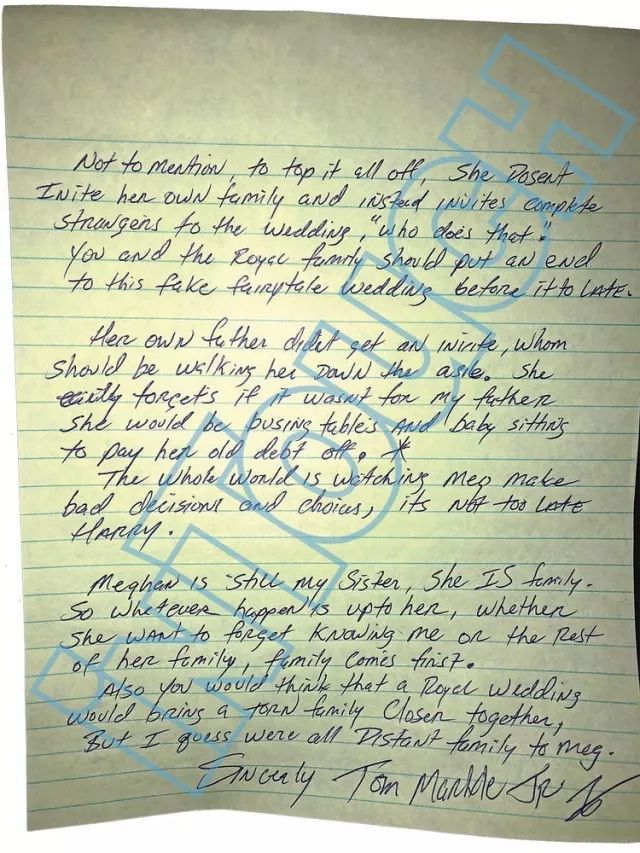 Not to mention, to top it all off, She Dosent
Inite her own family and instead invites complete
strangers to the wedding, "who does that".
You and the Royal family should put an end
to this fake fairytale wedding before it to LATE.
Her own father didnt get an inivite, whom
should be walking her DOWN the asle. She
forgets if it wasn't for my father
she would be busing tables AND baby sitting
to pay her old debt off. *
The whole world is watching Meg make
bad decisions and choices, its NOT too LATE
HARRY.
Meghan is still my Sister, She IS family.
So whatever happen is upto her, whether
she WANT to forget KNOWing me or the Rest
of her family, family comes first.
Also you would think that a Royal Wedding
would bring a TORN family Closer together,
But I guess were all Distant family to Meg.
Sincerly Tom Markle Jr
inTouch